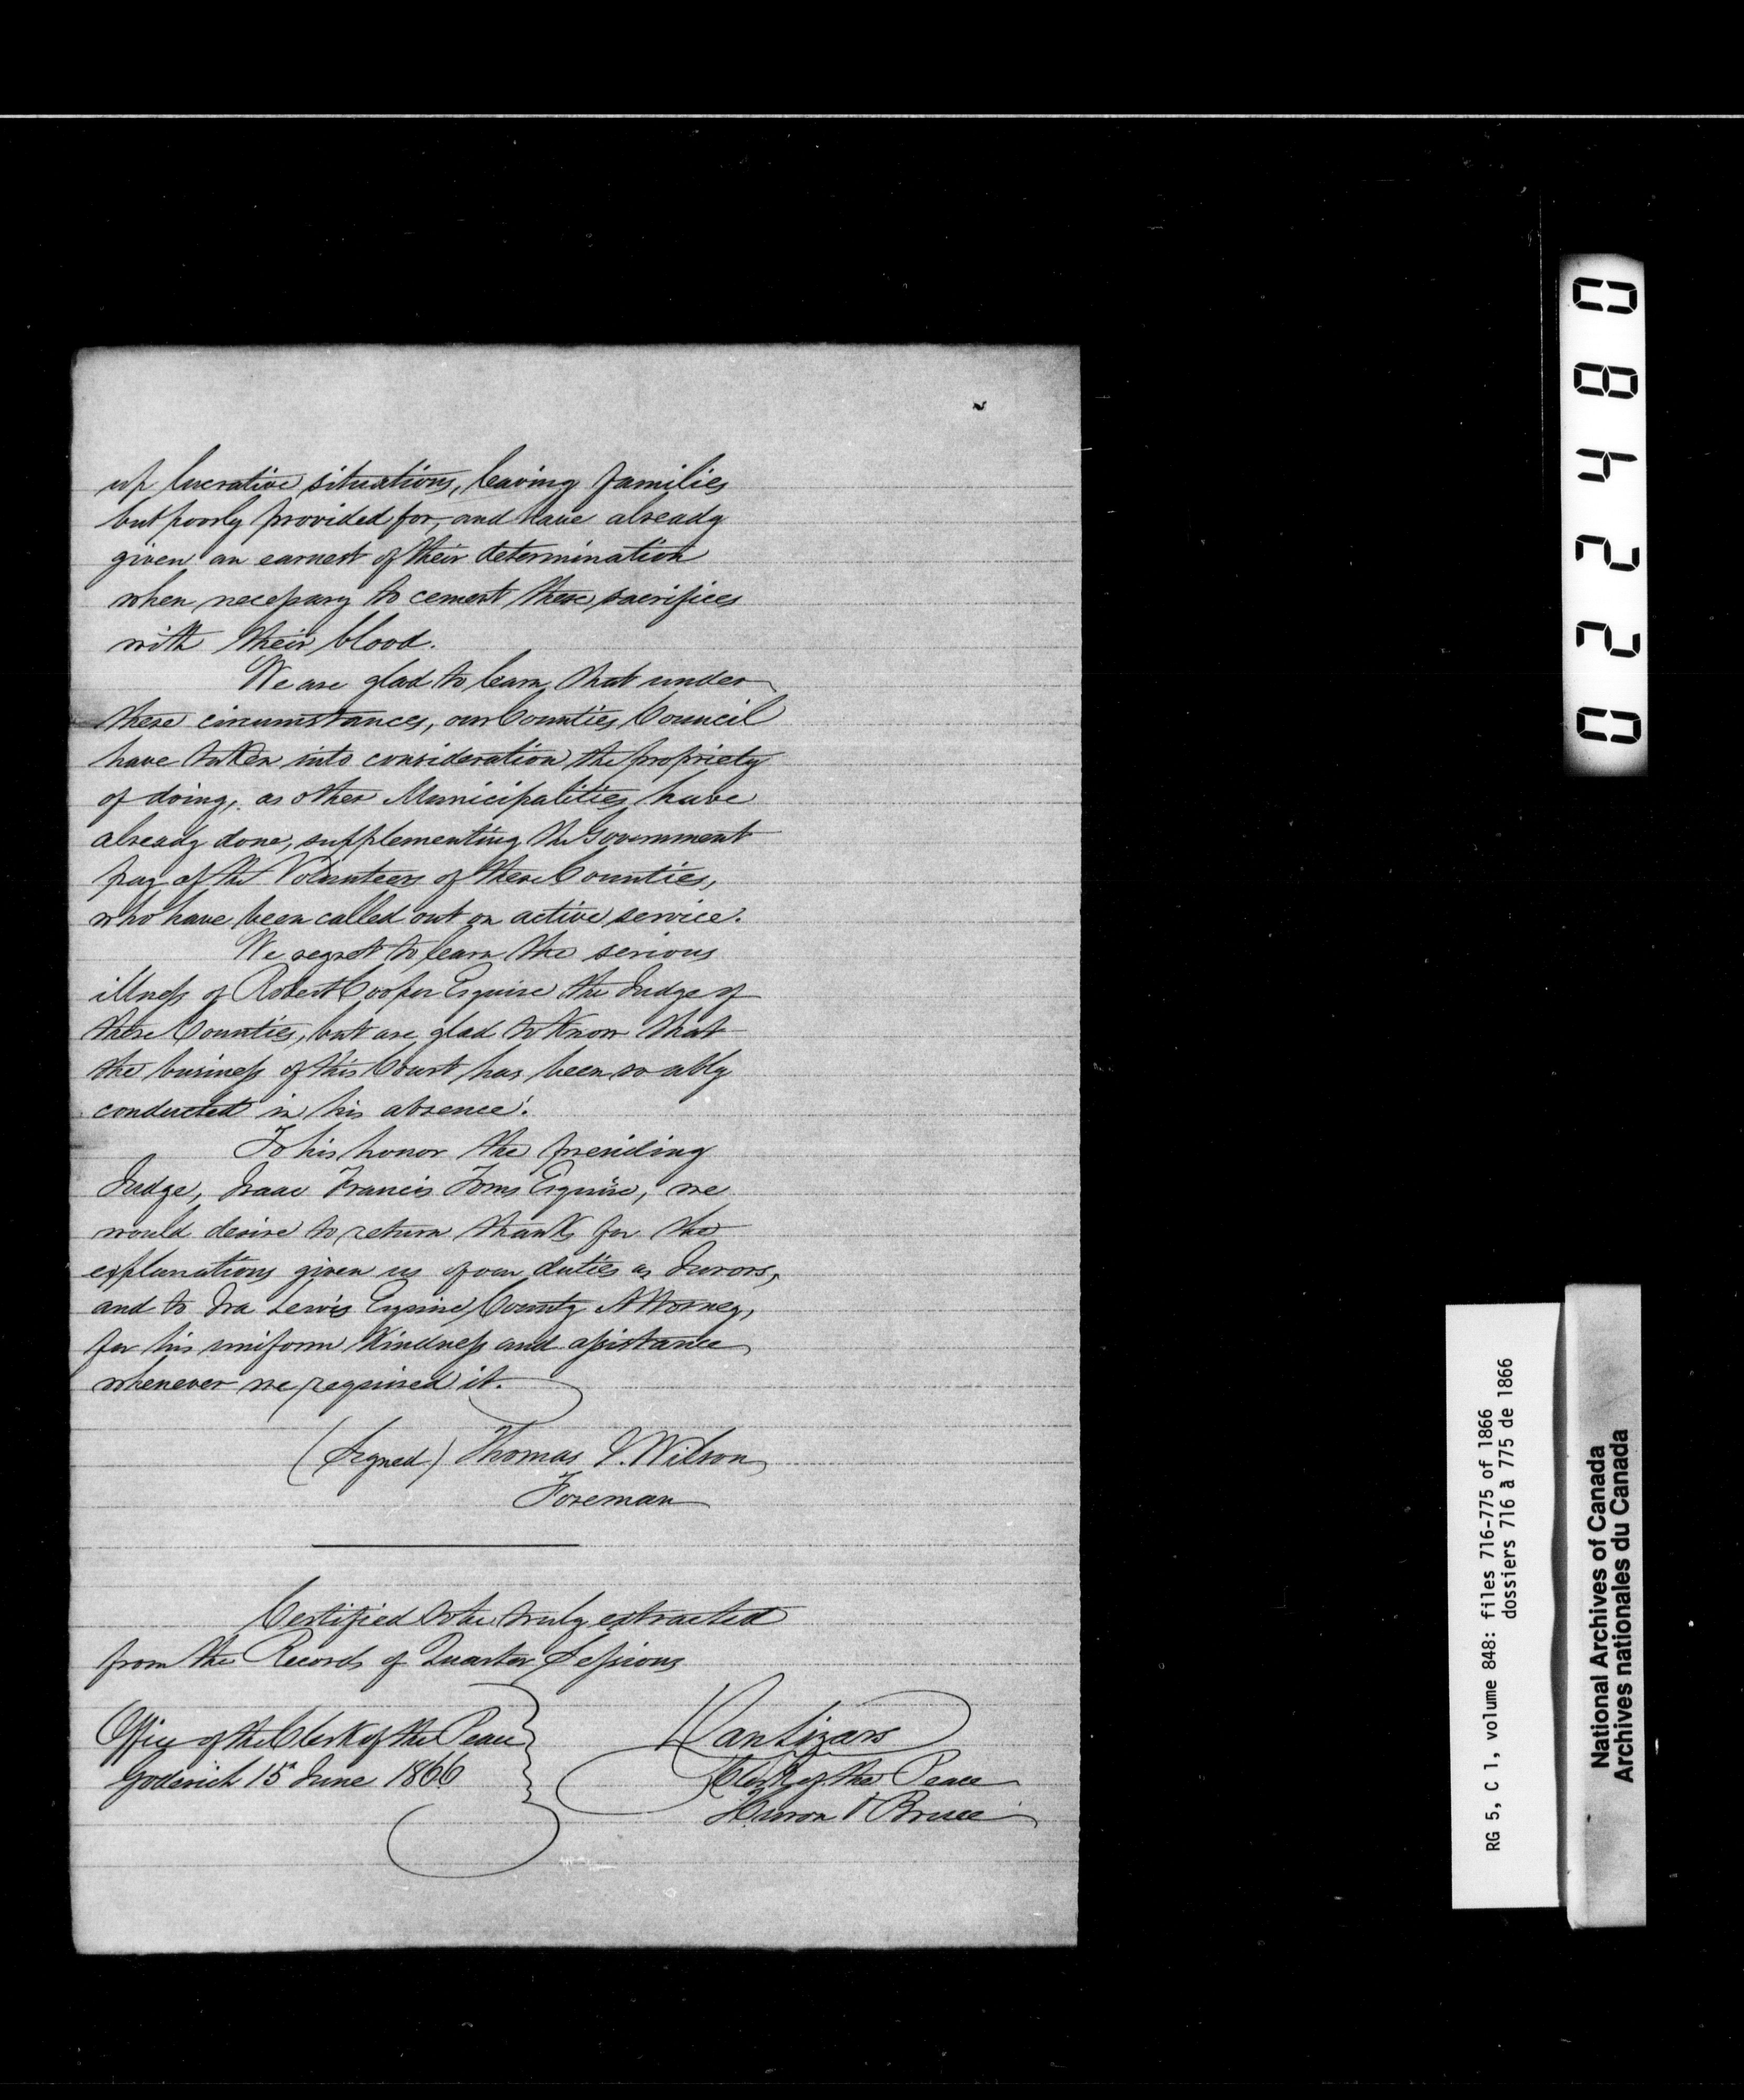 up lucrative situations, leaving families
but poorly provided for, and have already
given an earnest of their determination
when necessary to cement these sacrifices
with their blood.
We are glad to learn that under
these circumstances, our Counties Council
have taken into consideration the propriety
of doing, as other Municipalities have
already done, supplementing the Government
pay of the Volunteers of these Counties,
who have been called out on active service.
We regret to learn the serious
illness of Robert Cooper Esquire the Judge of
these Counties, but are glad to know that
the business of this Court has been so ably
conducted in his absence.
To his honor the presiding
Judge, Isaac Francis Toms Esquire, we
would desire to return thanks for the
explanations given us of our duties as Jurors,
and to Ira Lewis Esquire County Attorney,
for his uniform kindness and assistance
whenever we required it.
(Signed) Thomas J. Wilson
Foreman
Certified to be truly extracted
from the Records of Quarter Sessions
Office of the Clerk of the Peace
Goderich 15th June 1866
Dan Lizars
Clerk of the Peace
Huron & Bruce
022480
RG 5, C 1, volume 848: files 716-775 of 1866
dossiers 716 à 775 de 1866
National Archives of Canada
Archives nationales du Canada